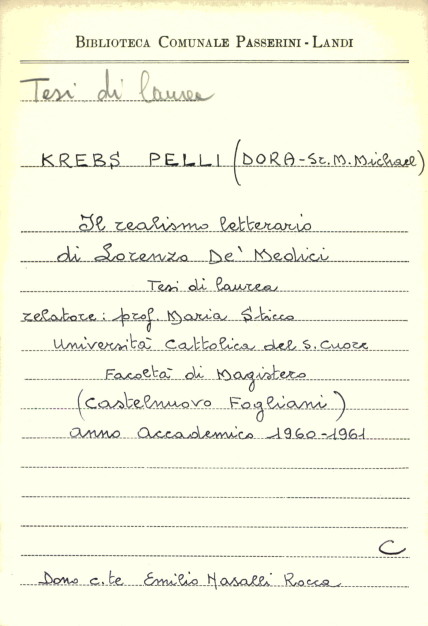 BIBLIOTECA COMUNALE PASSERINI - LANDI
Tesi di laurea
KREBS PELLI (DORA - Sr. M. Michael)
Il realismo letterario
di Lorenzo De' Medici
Tesi di laurea
relatore: prof. Maria Sticco
Università Cattolica del S. Cuore
Facoltà di Magistero
(Castelnuovo Fogliani)
anno accademico 1960-1961
C
Dono c.te Emilio Nasalli Rocca